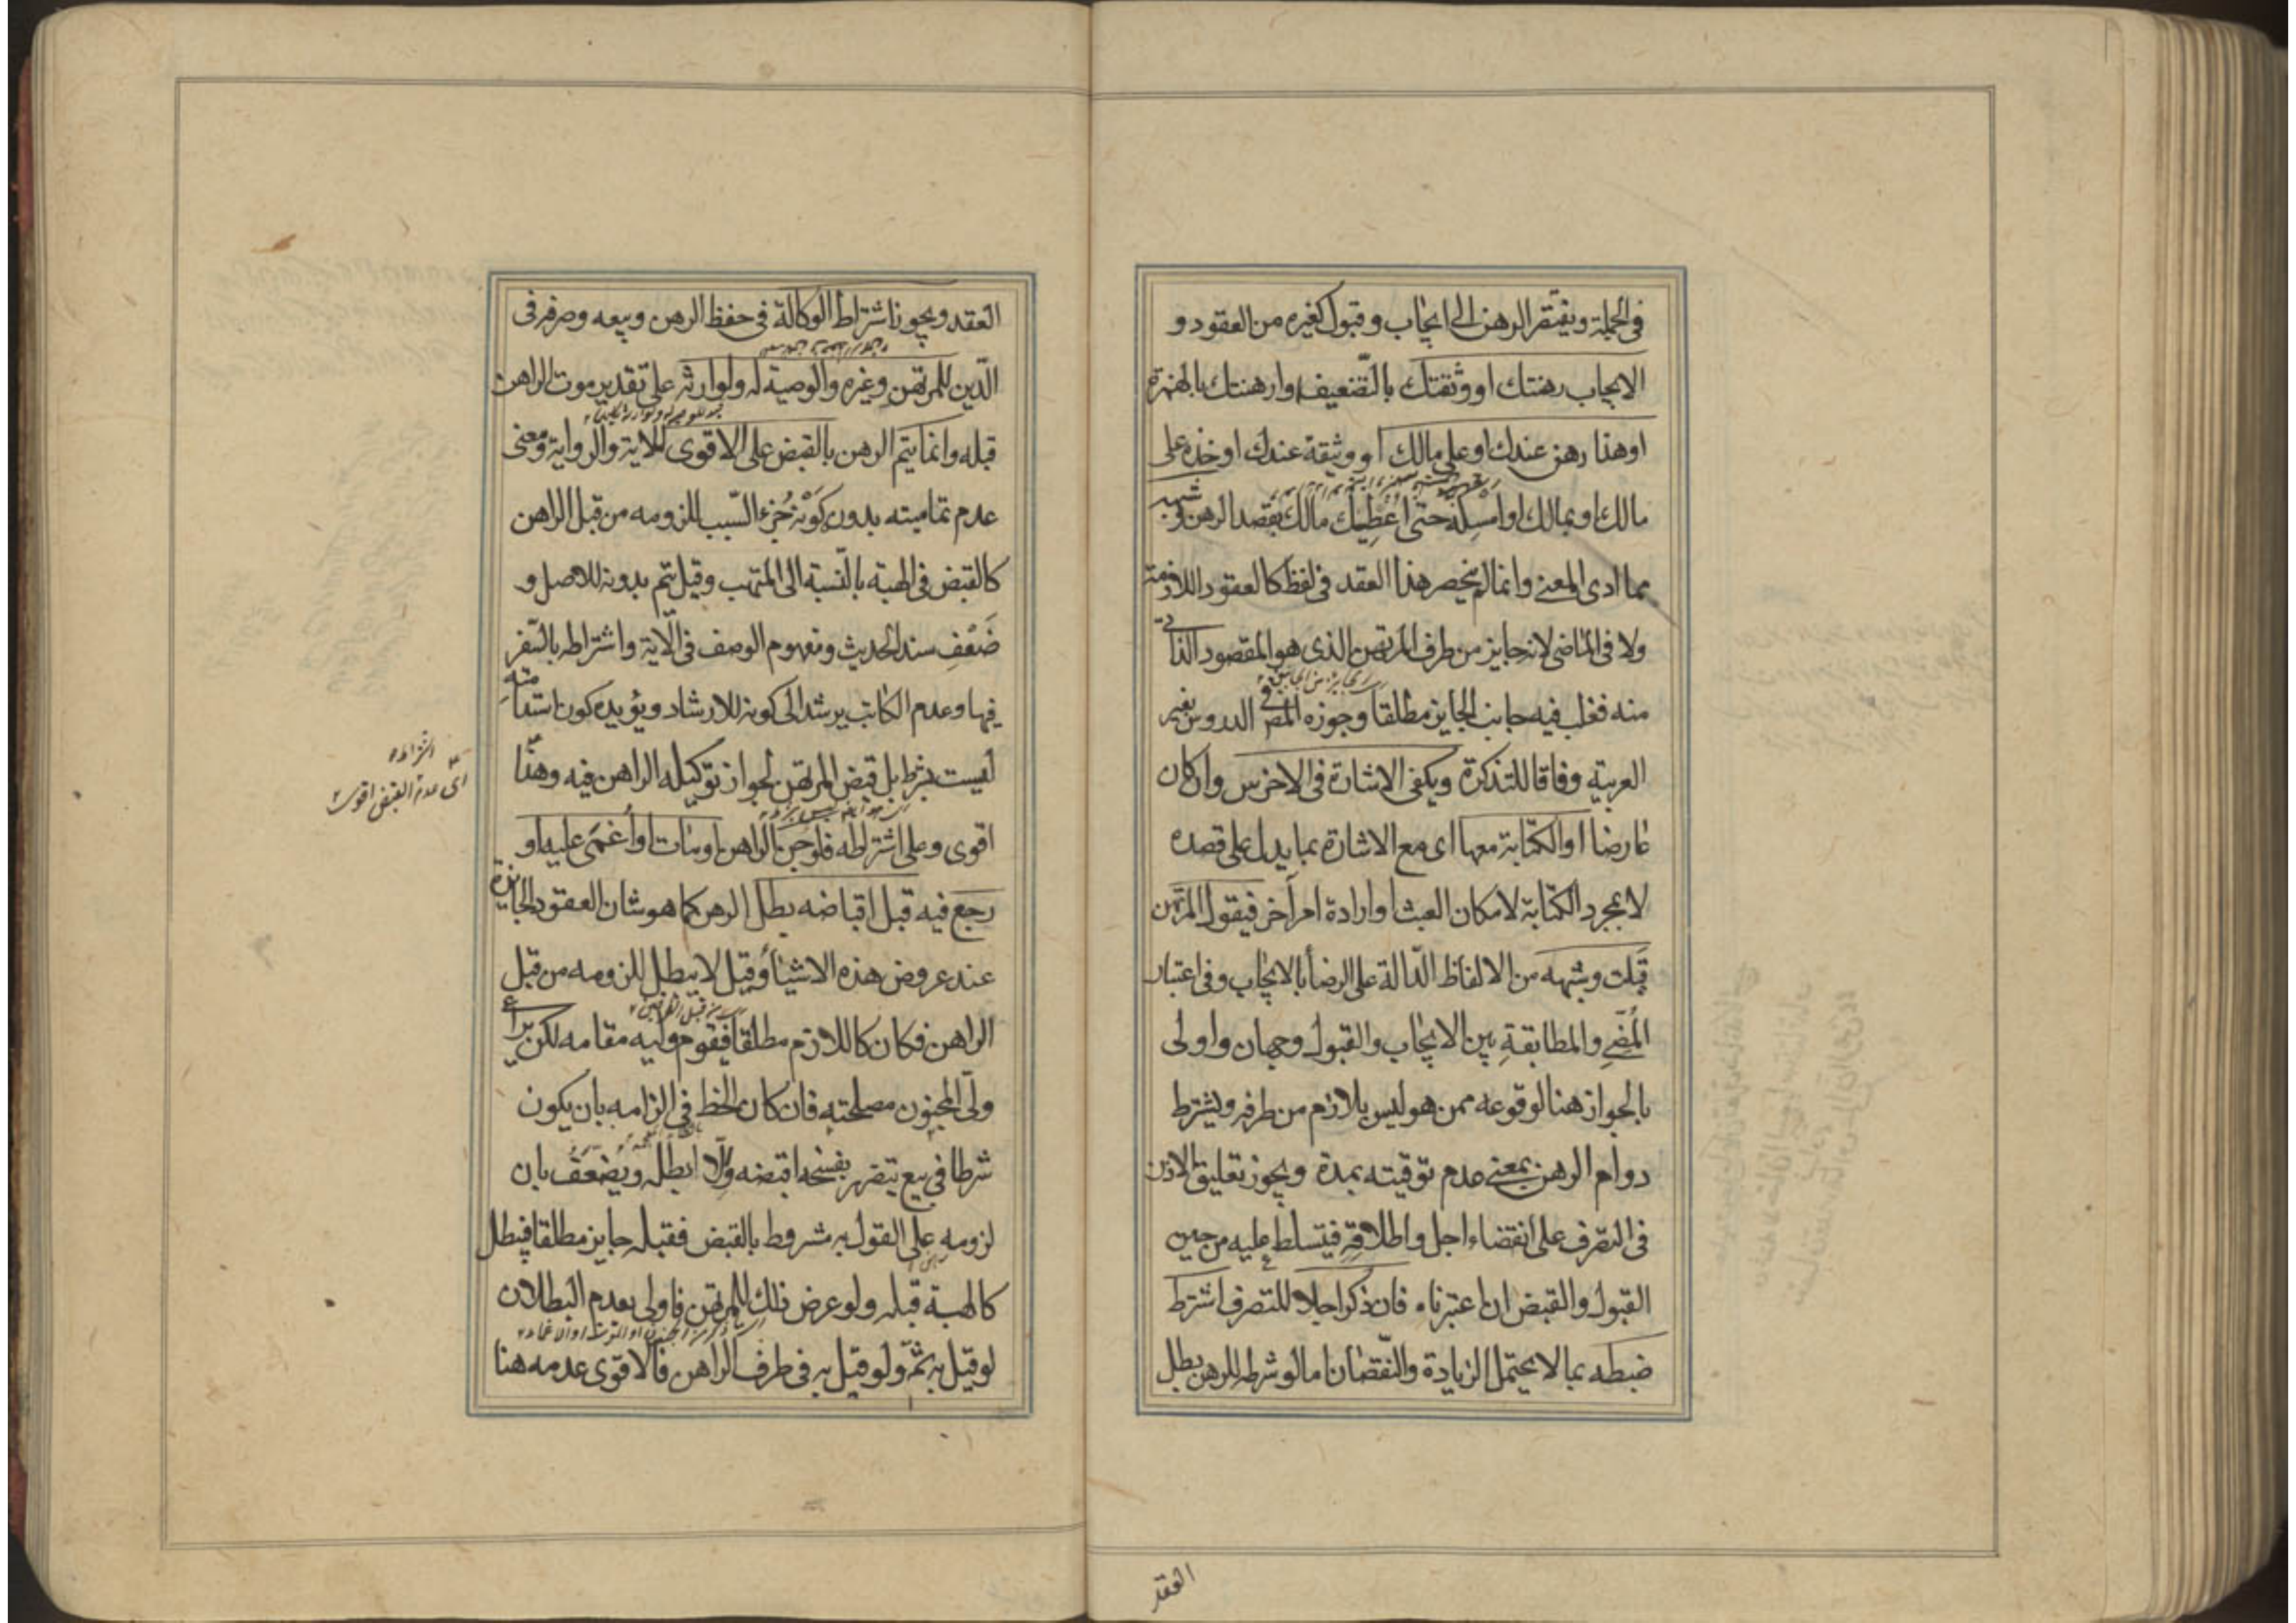 في الجملة ويفتقر الرهن الى ايجاب وقبول كغيره من العقود و
الايجاب رهنتك او وثقتك بالتضعيف وارهنتك بالهمزة
او هذا رهن عندك او على مالك او وثيقة عندك او خذه على
مالك او بمالك او امسكه حتى اعطيك مالك بقصد الرهن وشبهه
مما ادى المعنى وانما لم ينحصر هذا العقد في لفظ كالعقود اللازمة
ولا في الماضي لانه جايز من طرف المرتهن الذي هو المقصود الذاتي
منه فغلب فيه جانب الجايز مطلقا وجوزه المص في الدروس بغير
العربية وفاقا للتذكرة ويكفى الاشارة في الاخرس وان كان
عارضا او الكتابة معها اى مع الاشارة بما يدل على قصده
لا بمجرد الكتابة لامكان العبث او ارادة امر آخر فيقول المرتهن
قبلت وشبهه من الالفاظ الدالة على الرضا بالايجاب وفي اعتبار
المضي والمطابقة بين الايجاب والقبول وجهان واولى
بالجواز هنا لوقوعه ممن هو ليس بلازم من طرفه ويشترط
دوام الرهن بمعنى عدم توقيته بمدة ويجوز تعليق الاذن
في التصرف على انقضاء اجل واطلاقه فيتسلط عليه من حين
القبول والقبض ان اعتبرناه فان ذكر اجلا للتصرف اشترط
ضبطه بما لا يحتمل الزيادة والنقصان اما لو شرطه للرهن بطل
العقد
العقد ويجوز اشتراط الوكالة في حفظ الرهن وبيعه وصرفه في
الدين للمرتهن وغيره والوصية له ولوارثه على تقدير موت الراهن
قبله وانما يتم الرهن بالقبض على الاقوى للاية والرواية ومعنى
عدم تماميته بدونه كونه جزء السبب للزومه من قبل الراهن
كالقبض في الهبة بالنسبة الى المتهب وقيل يتم بدونه للاصل و
ضعف سند الحديث ومفهوم الوصف في الاية واشتراطه بالسفر
فيها وعدم الكاتب يرشد الى كونه للارشاد ويؤيده كون استدامته
ليست بشرط بل قبض المرتهن لجواز توكيله الراهن فيه وهذا
اقوى وعلى اشتراطه فلو جن الراهن او مات او أغمى عليه او
رجع فيه قبل اقباضه بطل الرهن كما هو شان العقود الجايزة
عند عروض هذه الاشياء وقيل لا يبطل للزومه من قبل
الراهن فكان كاللازم مطلقا فيقوم وليه مقامه لكن يراعى
ولى المجنون مصلحته فان كان الحظ في الزامه بان يكون
شرطا في بيع يتضرر بفسخه اقبضه والا ابطله ويضعف بان
لزومه على القول به مشروط بالقبض فقبله جايز مطلقا فيبطل
كالهبة قبله ولو عرض ذلك للمرتهن فاولى بعدم البطلان
لو قيل به ثم ولو قيل به في طرف الراهن فالاقوى عدمه هنا
اى عدم القبض اقوى